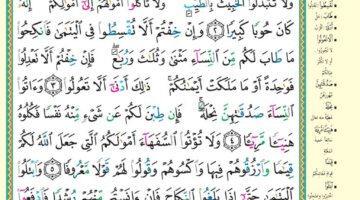 وَلَا تَتَبَدَّلُوا۟ ٱلْخَبِيثَ بِٱلطَّيِّبِ وَلَا تَأْكُلُوٓا۟ أَمْوَٰلَهُمْ إِلَىٰٓ أَمْوَٰلِكُمْ إِنَّهُۥ
كَانَ حُوبًا كَبِيرًا ٢ وَإِنْ خِفْتُمْ أَلَّا تُقْسِطُوا۟ فِى ٱلْيَتَٰمَىٰ فَٱنكِحُوا۟
مَا طَابَ لَكُم مِّنَ ٱلنِّسَآءِ مَثْنَىٰ وَثُلَٰثَ وَرُبَٰعَ فَإِنْ خِفْتُمْ أَلَّا تَعْدِلُوا۟
فَوَٰحِدَةً أَوْ مَا مَلَكَتْ أَيْمَٰنُكُمْ ذَٰلِكَ أَدْنَىٰٓ أَلَّا تَعُولُوا۟ ٣ وَءَاتُوا۟
ٱلنِّسَآءَ صَدُقَٰتِهِنَّ نِحْلَةً فَإِن طِبْنَ لَكُمْ عَن شَىْءٍ مِّنْهُ نَفْسًا فَكُلُوهُ
هَنِيٓـًٔا مَّرِيٓـًٔا ٤ وَلَا تُؤْتُوا۟ ٱلسُّفَهَآءَ أَمْوَٰلَكُمُ ٱلَّتِى جَعَلَ ٱللَّهُ لَكُمْ
قِيَٰمًا وَٱرْزُقُوهُمْ فِيهَا وَٱكْسُوهُمْ وَقُولُوا۟ لَهُمْ قَوْلًا مَّعْرُوفًا ٥ وَٱبْتَلُوا۟
ٱلْيَتَٰمَىٰ حَتَّىٰٓ إِذَا بَلَغُوا۟ ٱلنِّكَاحَ فَإِنْ ءَانَسْتُم مِّنْهُمْ رُشْدًا فَٱدْفَعُوٓا۟